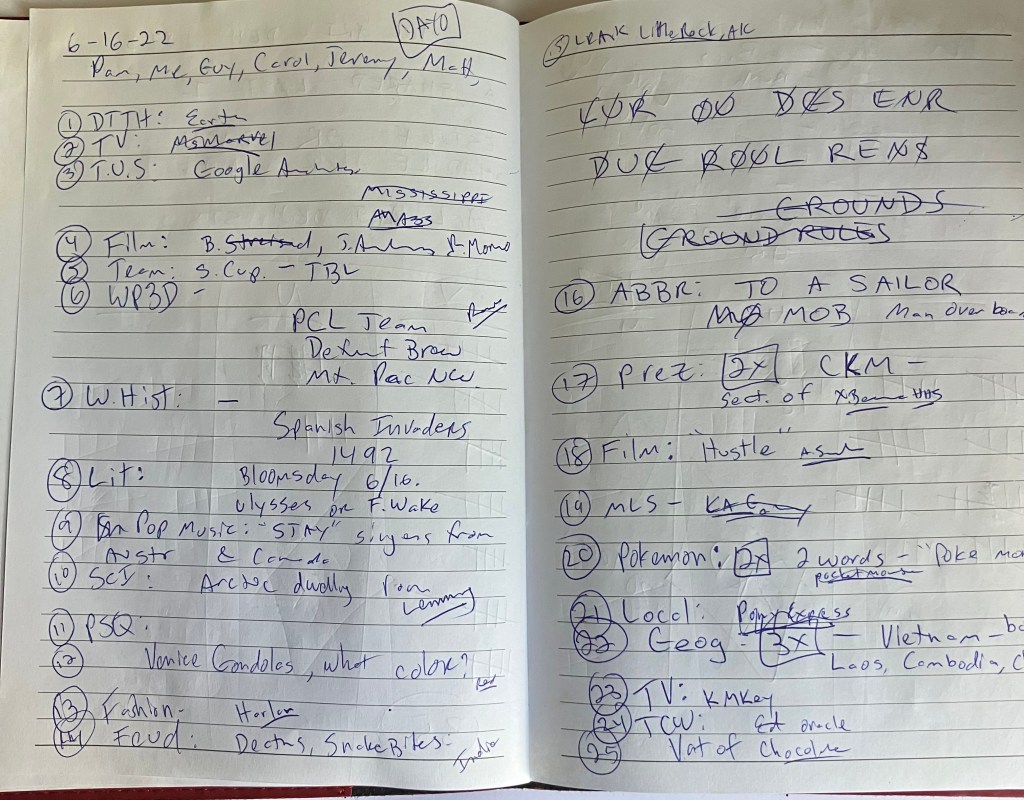 6-16-22
DATO
Pam, Me, Guy, Carol, Jeremy, Matt,
① DTTH: Earth
② TV: MsMarvel
③ T.U.S: Google
Mississippi
④ Film: B. Streisand, J. Andrews
⑤ Team: S. Cup. - TBL
⑥ WP3D -
PCL Team
Brow
Mt. Pac NW.
⑦ W. Hist: —
Spanish Invaders
1492
⑧ Lit: Bloomsday 6/16.
Ulysses or F. Wake
⑨ Pop Music: "STAY" singers from
Austr & Canada
⑩ SCI: Arctic dwelling
Lemming
⑪ PSQ:
12 Venice Gondolas, what color?
Red
13 Fashion-
14 Feud: Deaths, Snake Bites:
India
15 Little Rock, AK
FOR OO DES ENR
DUE ROOL RENS
GROUNDS
GROUND RULES
⑯ ABBR: TO A SAILOR
MOB Man over boar
⑰ Prez: 2x CKM -
Sect. of
⑱ Film: "Hustle"
⑲ MLS -
⑳ Pokemon: 2x 2 words - "Poke mo
21 Local: Pony Express
22 Geog - 3x - Vietnam - bo
Laos, Cambodia, C
23 TV: KMKey
24 TCW: oracle
25 Vat of Chocolate